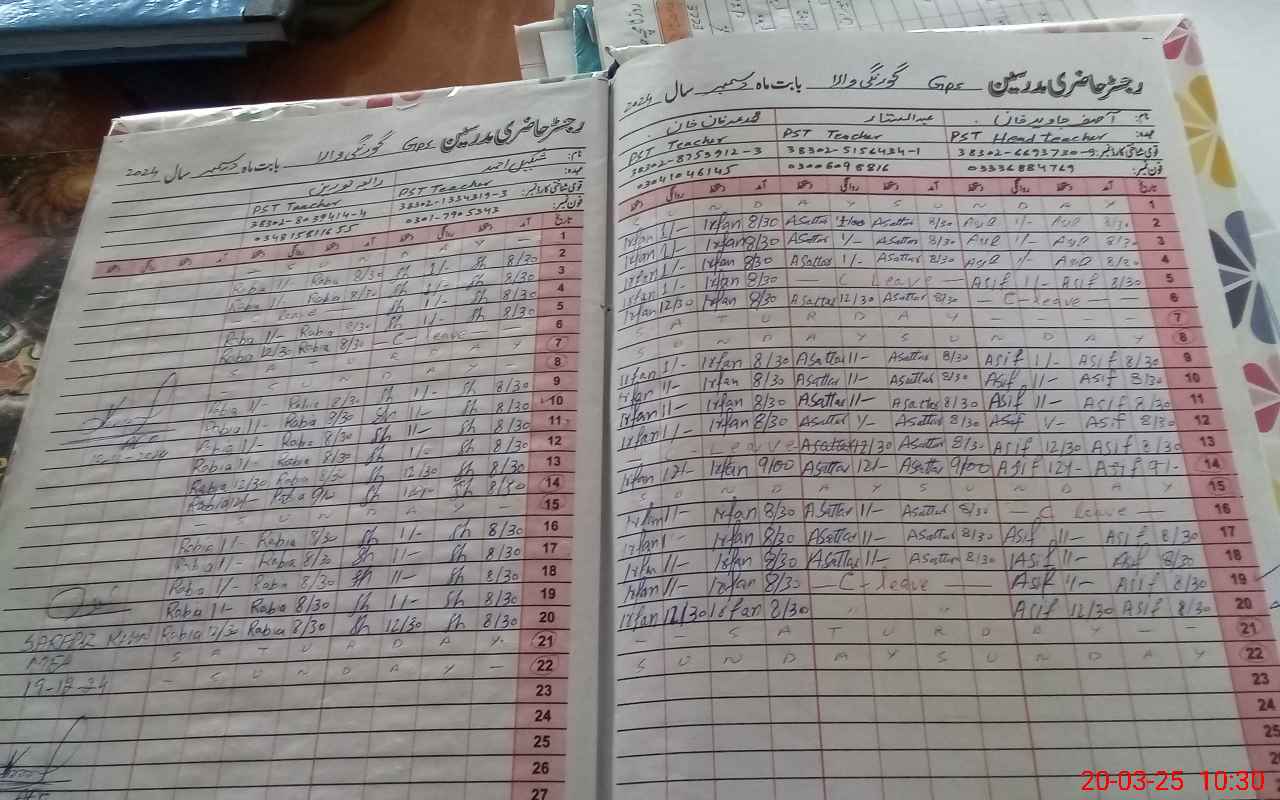 رجسٹر حاضری مدرسین Gps گورنگی والا بابت ماہ دسمبر سال 2024
نام: شکیل احمد
عہدہ: PST Teacher PST Teacher
قومی شناختی کارڈ نمبر: 38302-1334319-3 38302-8039414-4
فون نمبر: 0301-7905343 03481581655
تاریخ آمد دستخط روانگی دستخط آمد دستخط روانگی دستخط
1 — S U N D A Y —
2 Rabia 1/- Rabia 8/30 Sh 1/- Sh 8/30
3 Sh 1/- Sh 8/30
4 Rabia 1/- Rabia 8/30 Sh 1/- Sh 8/30
5 C leave Sh 1/- Sh 8/30
6 Rabia 12/30 Rabia 8/30 — C-leave —
7 S A T U R D A Y
8 S U N D A Y
9 Rabia 1/- Rabia 8/30 Sh 1/- Sh 8/30
10 Rabia 11- Rabia 8/30 Sh 11- Sh 8/30
11 Rabia 1/- Rabia 8/30 Sh 11- Sh 8/30
12 Rabia 1/- Rabia 8/30 Sh Sh 8/30
13 Rabia 12/30 Rabia 8/30 Sh 12/30 Sh 8/30
14 Rabia 12/- Rabia 9/0 Sh 12/- Sh 8/30
15 — S U N D A Y —
16 Rabia 11- Rabia 8/30 Sh 1/- Sh 8/30
17 Rabia 11- Rabia 8/30 Sh 11- Sh 8/30
18 Rabia 1/- Rabia 8/30 Sh 11- Sh 8/30
19 Rabia 11- Rabia 8/30 Sh 11- Sh 8/30
20 Rabia 12/30 Rabia 8/30 Sh 12/30 Sh 8/30
21 S A T U R D A Y
22 — S U N D A Y —
23
24
25
26
27
MEA
19-12-24
رجسٹر حاضری مدرسین Gps گورنگی والا بابت ماہ دسمبر سال 2024
نام: آصف جاوید خان عبدالستار محمد عرفان خان
عہدہ: PST Head teacher PST Teacher PST Teacher
قومی شناختی کارڈ نمبر: 38302-6693730-9 38302-5156434-1 38302-8753912-3
فون نمبر: 03336884769 03006098816 03041046145
تاریخ آمد دستخط روانگی دستخط آمد دستخط روانگی دستخط آمد دستخط روانگی
1 S U N D A Y S U N D A Y
2 Irfan 1/- Irfan 8/30 ASattar 1/00 ASattar 8/30 Asif 1/- Asif 8/30
3 Irfan 1/- Irfan 8/30 ASattar 1/- ASattar 8/30 Asif 1/- Asif 8/30
4 Irfan 1/- Irfan 8/30 ASattar 1/- ASattar 8/30 Asif 1/- Asif 8/30
5 Irfan 1/- Irfan 8/30 — C Leave — Asif 11- Asif 8/30
6 Irfan 12/30 Irfan 8/30 ASattar 12/30 ASattar 8/30 — C-leave —
7 S A T U R D A Y — — — —
8 S U N D A Y S U N D A Y
9 Irfan 1/- Irfan 8/30 ASattar 11- ASattar 8/30 Asif 1/- Asif 8/30
10 Irfan 11- Irfan 8/30 ASattar 11- ASattar 8/30 Asif 11- Asif 8/30
11 Irfan 11- Irfan 8/30 ASattar 11- ASattar 8/30 Asif 11- Asif 8/30
12 Irfan 1/- Irfan 8/30 ASattar 1/- ASattar 8/30 Asif 1/- Asif 8/30
13 Leave ASattar 12/30 ASattar 8/30 Asif 12/30 Asif 8/30
14 Irfan 12/- Irfan 9/00 ASattar 12/- ASattar 9/00 Asif 12/- Asif 9/-
15 S U N D A Y S U N D A Y
16 Irfan 11- Irfan 8/30 ASattar 11- ASattar 8/30 — C Leave —
17 Irfan 1- Irfan 8/30 ASattar 11- ASattar 8/30 Asif 11- Asif 8/30
18 Irfan 11- Irfan 8/30 ASattar 11- ASattar 8/30 Asif 11- Asif 8/30
19 Irfan 11- Irfan 8/30 — C-leave Asif 11- Asif 8/30
20 Irfan 12/30 Irfan 8/30 " " " Asif 12/30 Asif 8/30
21 — — S A T U R D A Y — —
22 S U N D A Y S U N D A Y
23
24
25
20-03-25 10:30